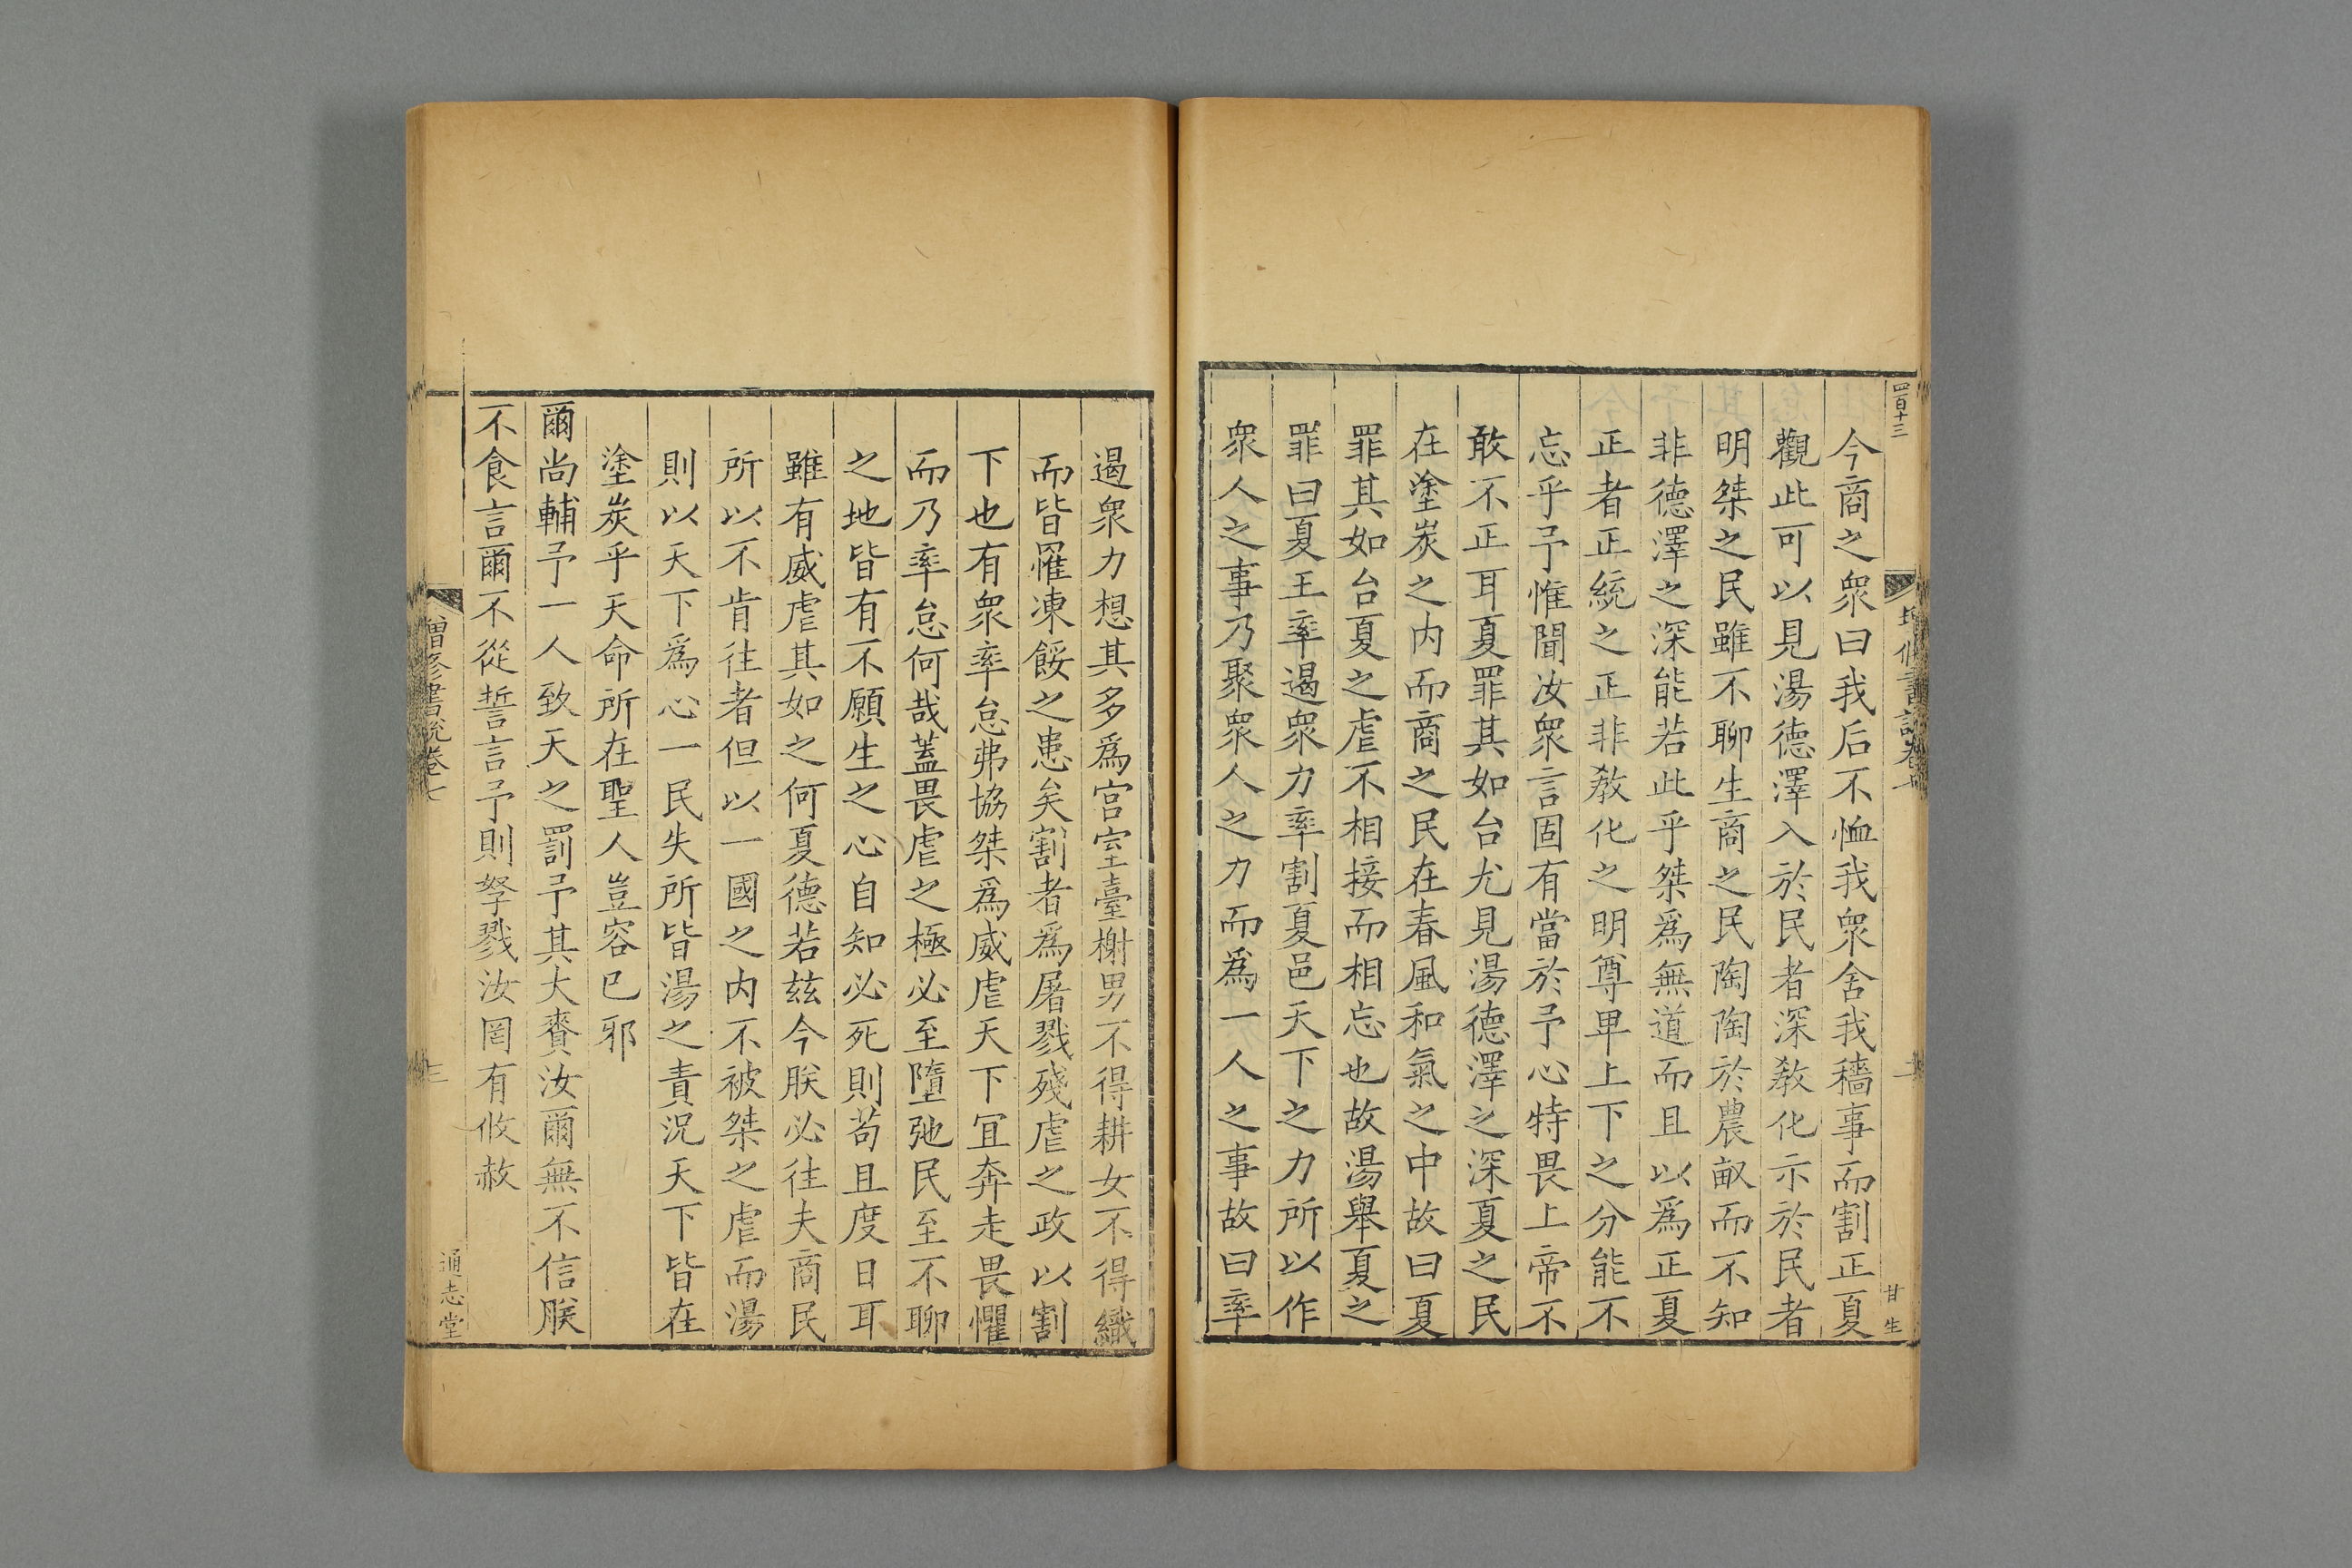 四百十三
今商之衆曰我后不恤我衆舍我穡事而割正夏
觀此可以見湯德澤入於民者深教化示於民者
明桀之民雖不聊生商之民陶陶於農畝而不知
非德澤之深能若此乎桀爲無道而且以爲正夏
正者正統之正非教化之明尊卑上下之分能不
忘乎予惟聞汝衆言固有當於予心特畏上帝不
敢不正耳夏罪其如台尤見湯德澤之深夏之民
在塗炭之内而商之民在春風和氣之中故曰夏
罪其如台夏之虐不相接而相忘也故湯舉夏之
罪曰夏王率遏衆力率割夏邑天下之力所以作
衆人之事乃聚衆人之力而爲一人之事故曰率
甘生
遏衆力想其多爲宫室臺榭男不得耕女不得織
而皆罹凍餒之患矣割者爲屠戮殘虐之政以割
下也有衆率怠弗協桀爲威虐天下宜奔走畏懼
而乃率怠何哉蓋畏虐之極必至墮弛民至不聊
之地皆有不願生之心自知必死則苟且度日耳
雖有威虐其如之何夏德若兹今朕必往夫商民
所以不肯往者但以一國之内不被桀之虐而湯
則以天下爲心一民失所皆湯之責況天下皆在
塗炭乎天命所在聖人豈容已邪
爾尚輔予一人致天之罰予其大賚汝爾無不信朕
不食言爾不從誓言予則孥戮汝罔有攸赦
增修書說卷七
三
通志堂